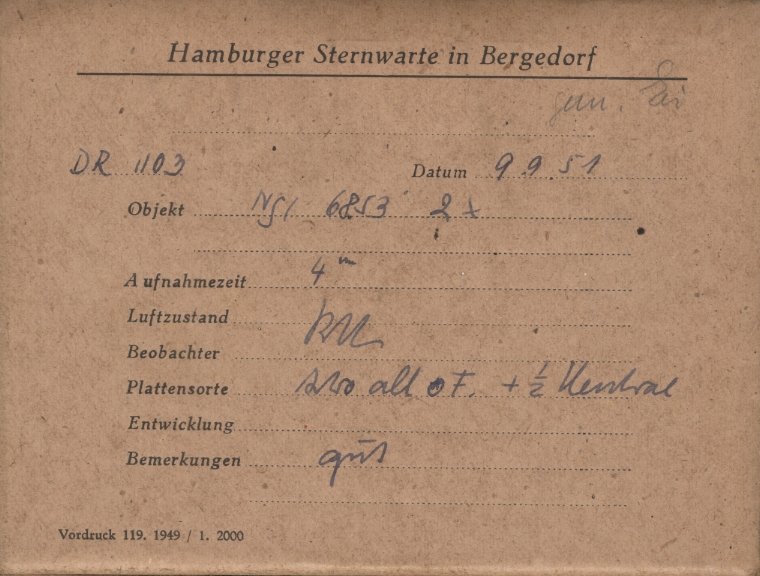 Hamburger Sternwarte in Bergedorf
DR 1103 Datum 9 9 51
Objekt 6853 2 x
Aufnahmezeit 4 m
Luftzustand
Beobachter
Plattensorte + 1/2 Neutral
Entwicklung
Bemerkungen gut
Vordruck 119. 1949 / 1. 2000